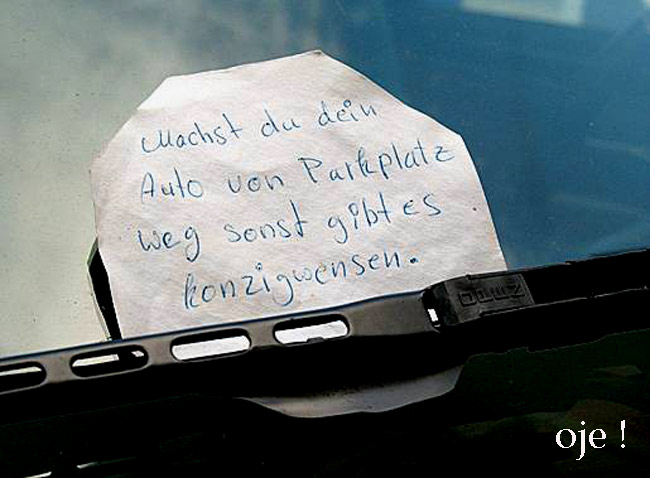 Machst du dein
Auto von Parkplatz
weg sonst gibt es
konzigwensen.
oje !